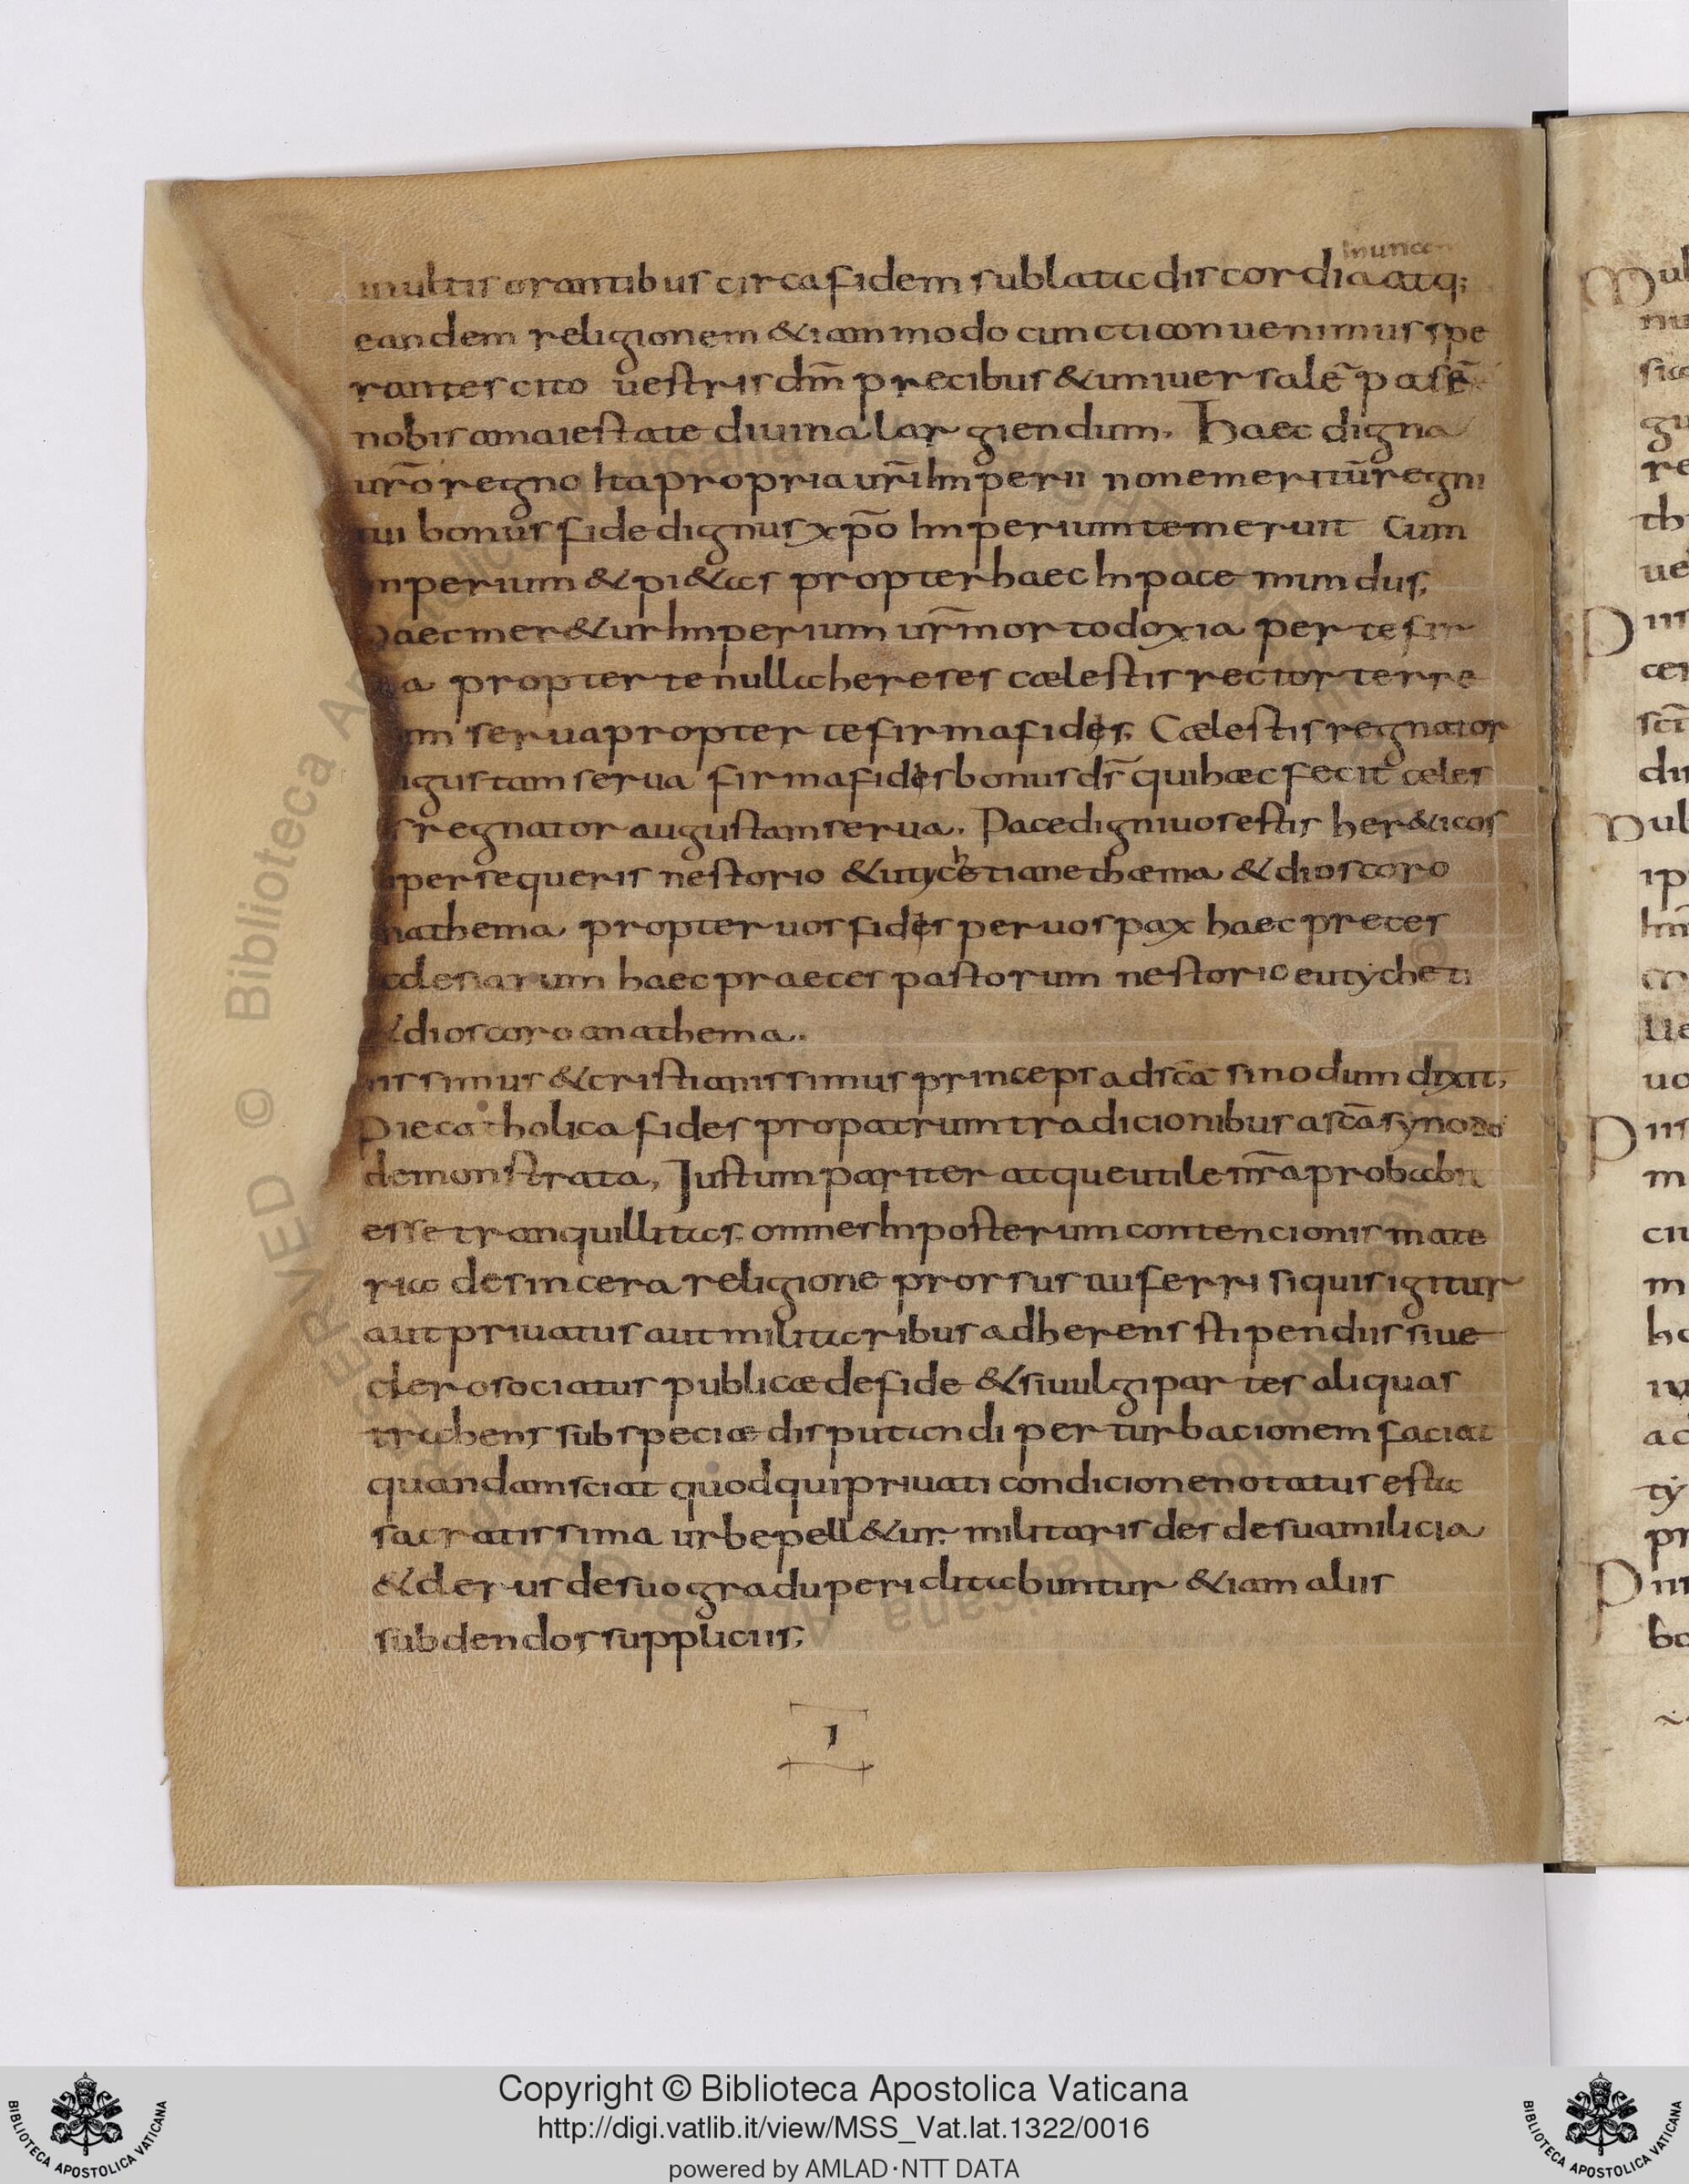 In unam
multis orantibus circa fidem sublata discordia atq;
eandem religionem &iam modo cuncti conuenimus spe
rantes cito uestris dm̄ precibus &uniuersalē pasē
nobis amaiestate diuina largiendum. Haec digna
ur̄o regno Ita propria ur̄i Imperii non emeritū regni
tui bonus fide dignus xp̄o Imperium te meruit Cum
mperium &pi&as propter haec In pace mundus,
aec mer&ur Imperium ur̄m ortodoxia per te fir
a propter te nulla hereses cælestis rector terre
um serua propter te firma fides. Cælestis regnator
ugustam serua firma fides bonus ds̄ qui hæc fecit celes
s regnator augustam serua. Pace digni uos estis her&icos
persequeris nestorio &utycheti anethæma &dioscoro
nathema propter uos fides per uos pax haec preces
clesiarum haec praeces pastorum nestorio eutycheti
&dioscoro anathema.
issimus &cristianissimus princeps ad sc̄a sinodum dixit,
Pie catholica fides pro patrum tradicionibus a sc̄a synodo
demonstrata, Justum pariter atque utile nr̄a probabit
esse tranquillitas, omnes In posterum contencionis mate
rias de sincera religione prorsus auferri si quis igitur
aut priuatus aut militaribus adherens stipendiis siue
clero sociatus publicæ de fide &si uulgi partes aliquas
trahens sub speciæ disputandi perturbacionem faciat
quandam sciat quod qui priuati condicione notatus est a
sacratissima urbe pell&ur. militaris des de sua milicia
&clerus de suo gradu periclitabuntur &iam aliis
subdendos suppliciis,
I
Copyright © Biblioteca Apostolica Vaticana
http://digi.vatlib.it/view/MSS_Vat.lat.1322/0016
powered by AMLAD·NTT DATA
BIBLIOTECA APOSTOLICA VATICANA
BIBLIOTECA APOSTOLICA VATICANA